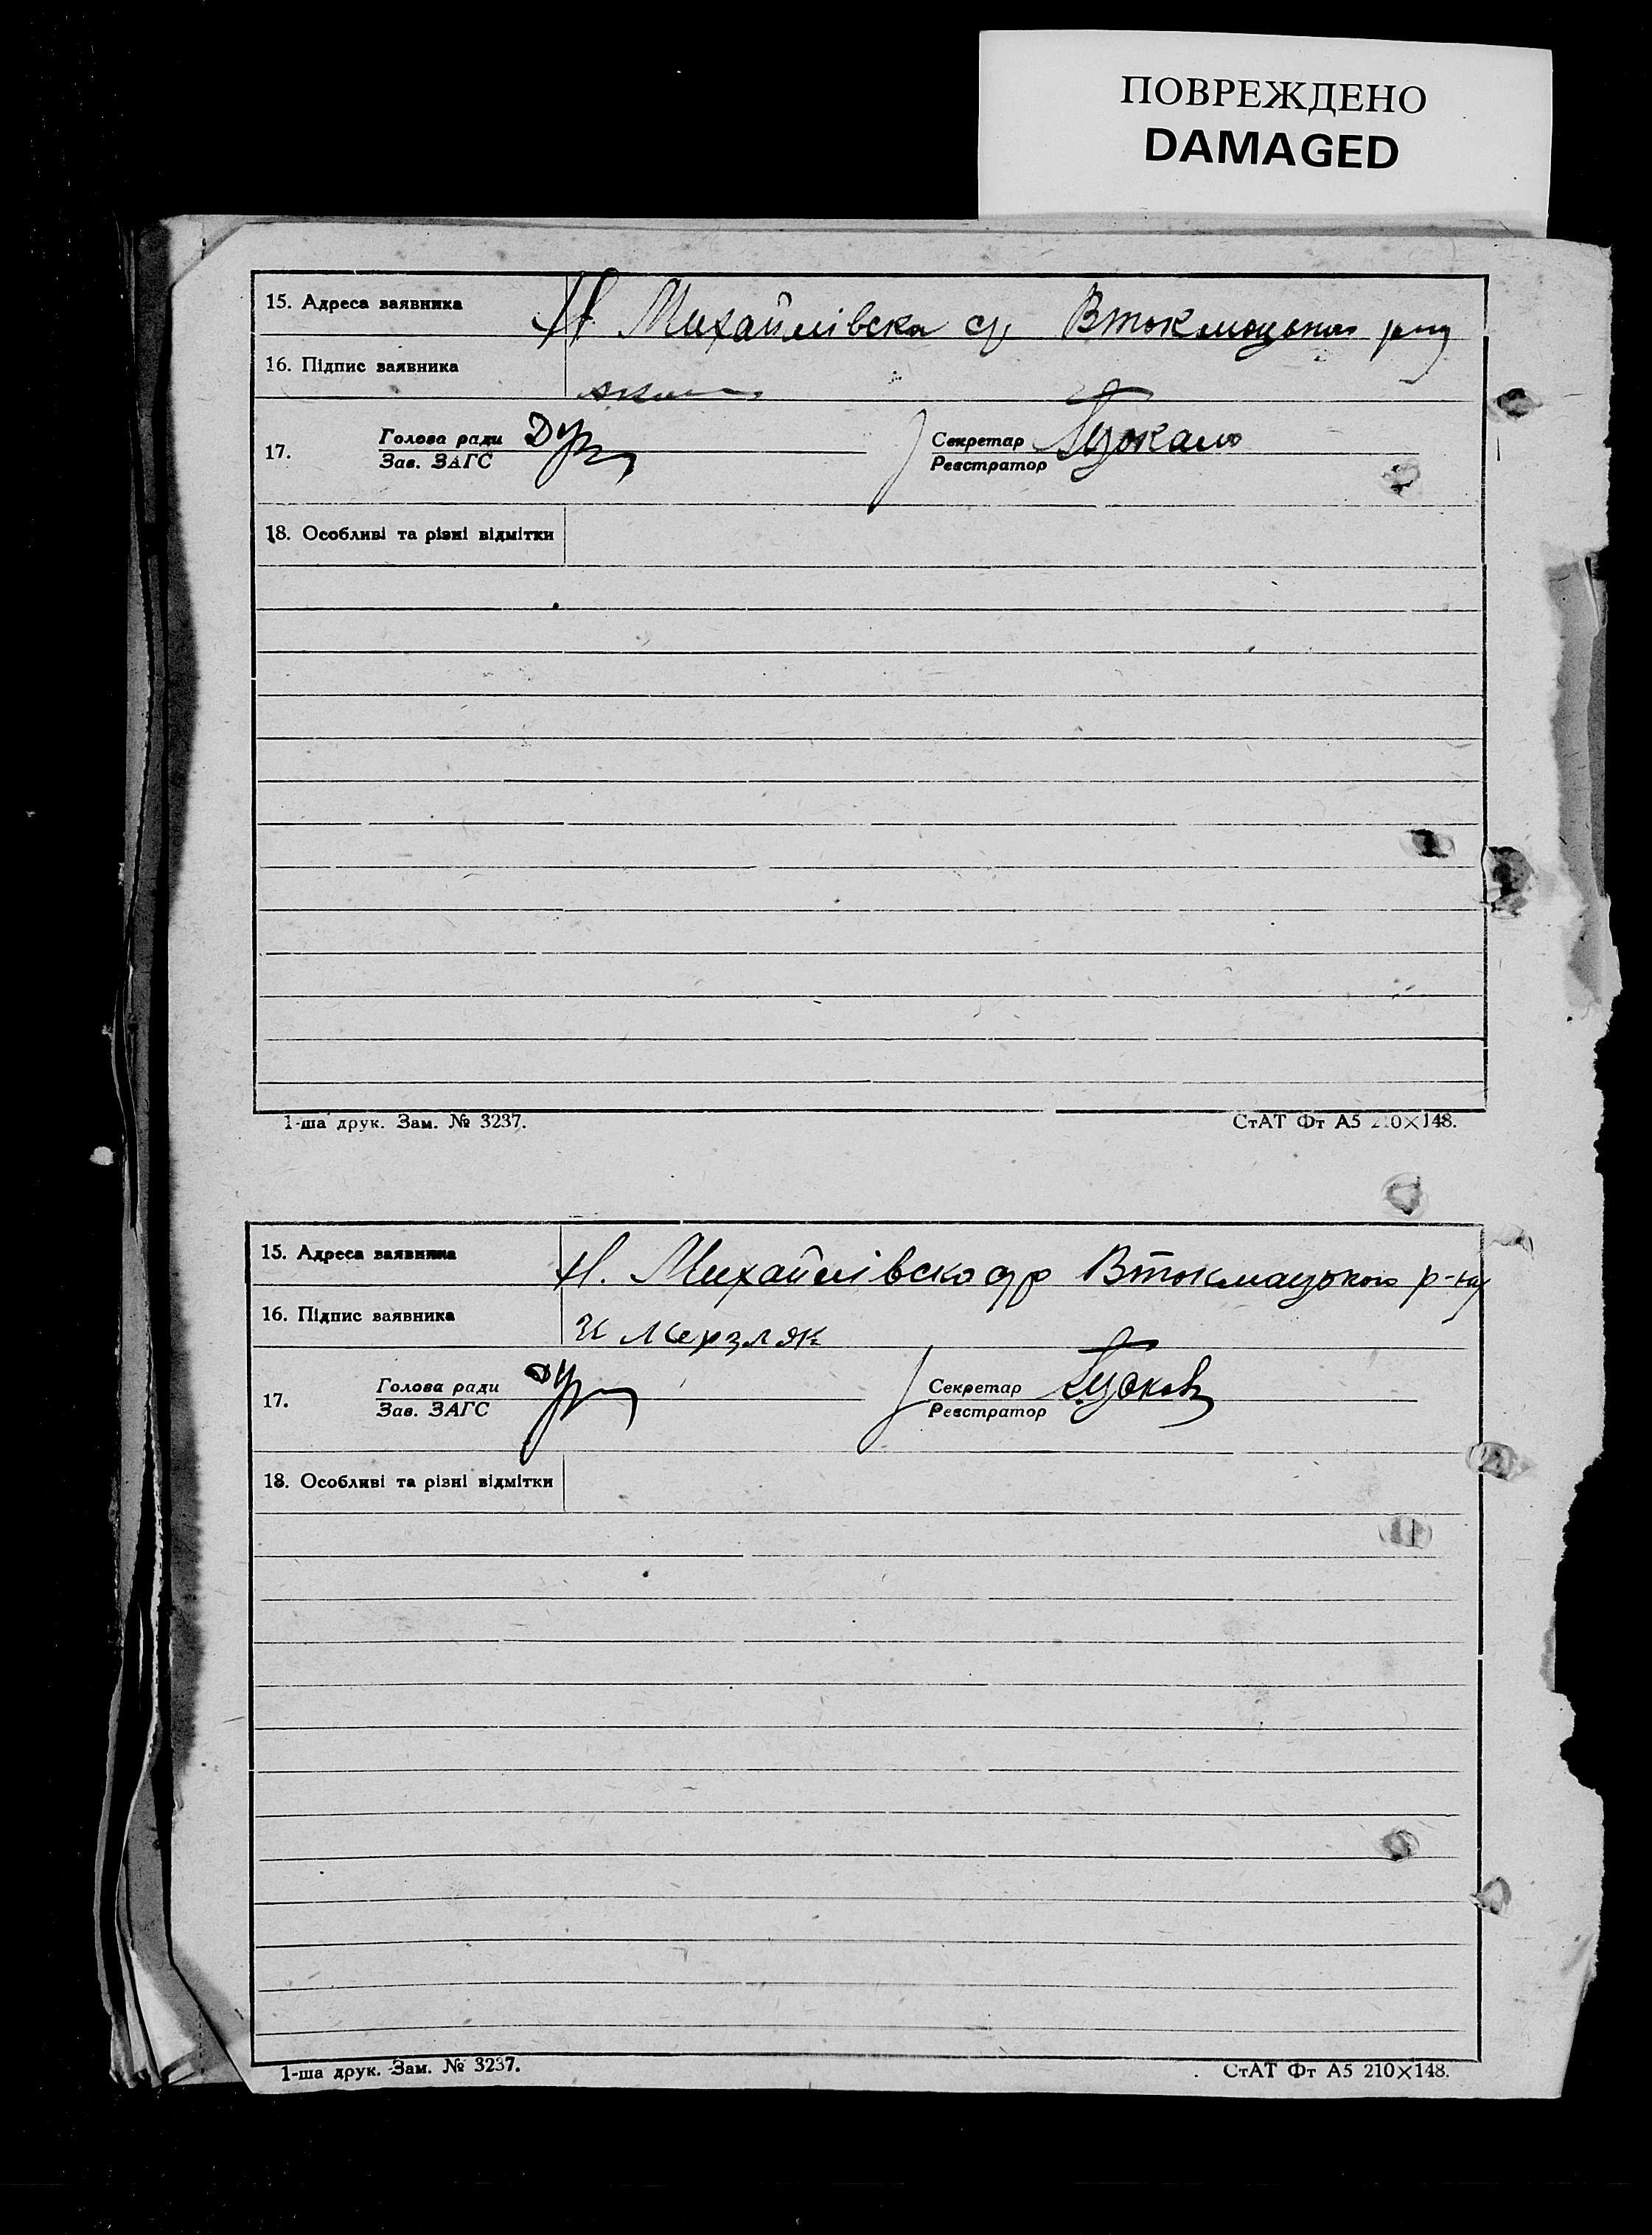 ПОВРЕЖДЕНО
DAMAGED
15. Адреса заявника Н Михайлівска с/р Втокмацького р-ну
16. Підпис заявника
17. Голова ради Секретар
Зав. ЗАГС Реєстратор
18. Особливі та різні відмітки
1-ша друк. Зам. № 3237. СтАТ Фт А5 210×148.
15. Адреса заявника Н. Михайлівско с/р Втокмацького р-ну
16. Підпис заявника И Мерзляк
17. Голова ради Секретар
Зав. ЗАГС Реєстратор
18. Особливі та різні відмітки
1-ша друк. Зам. № 3237. СтАТ Фт А5 210×148.